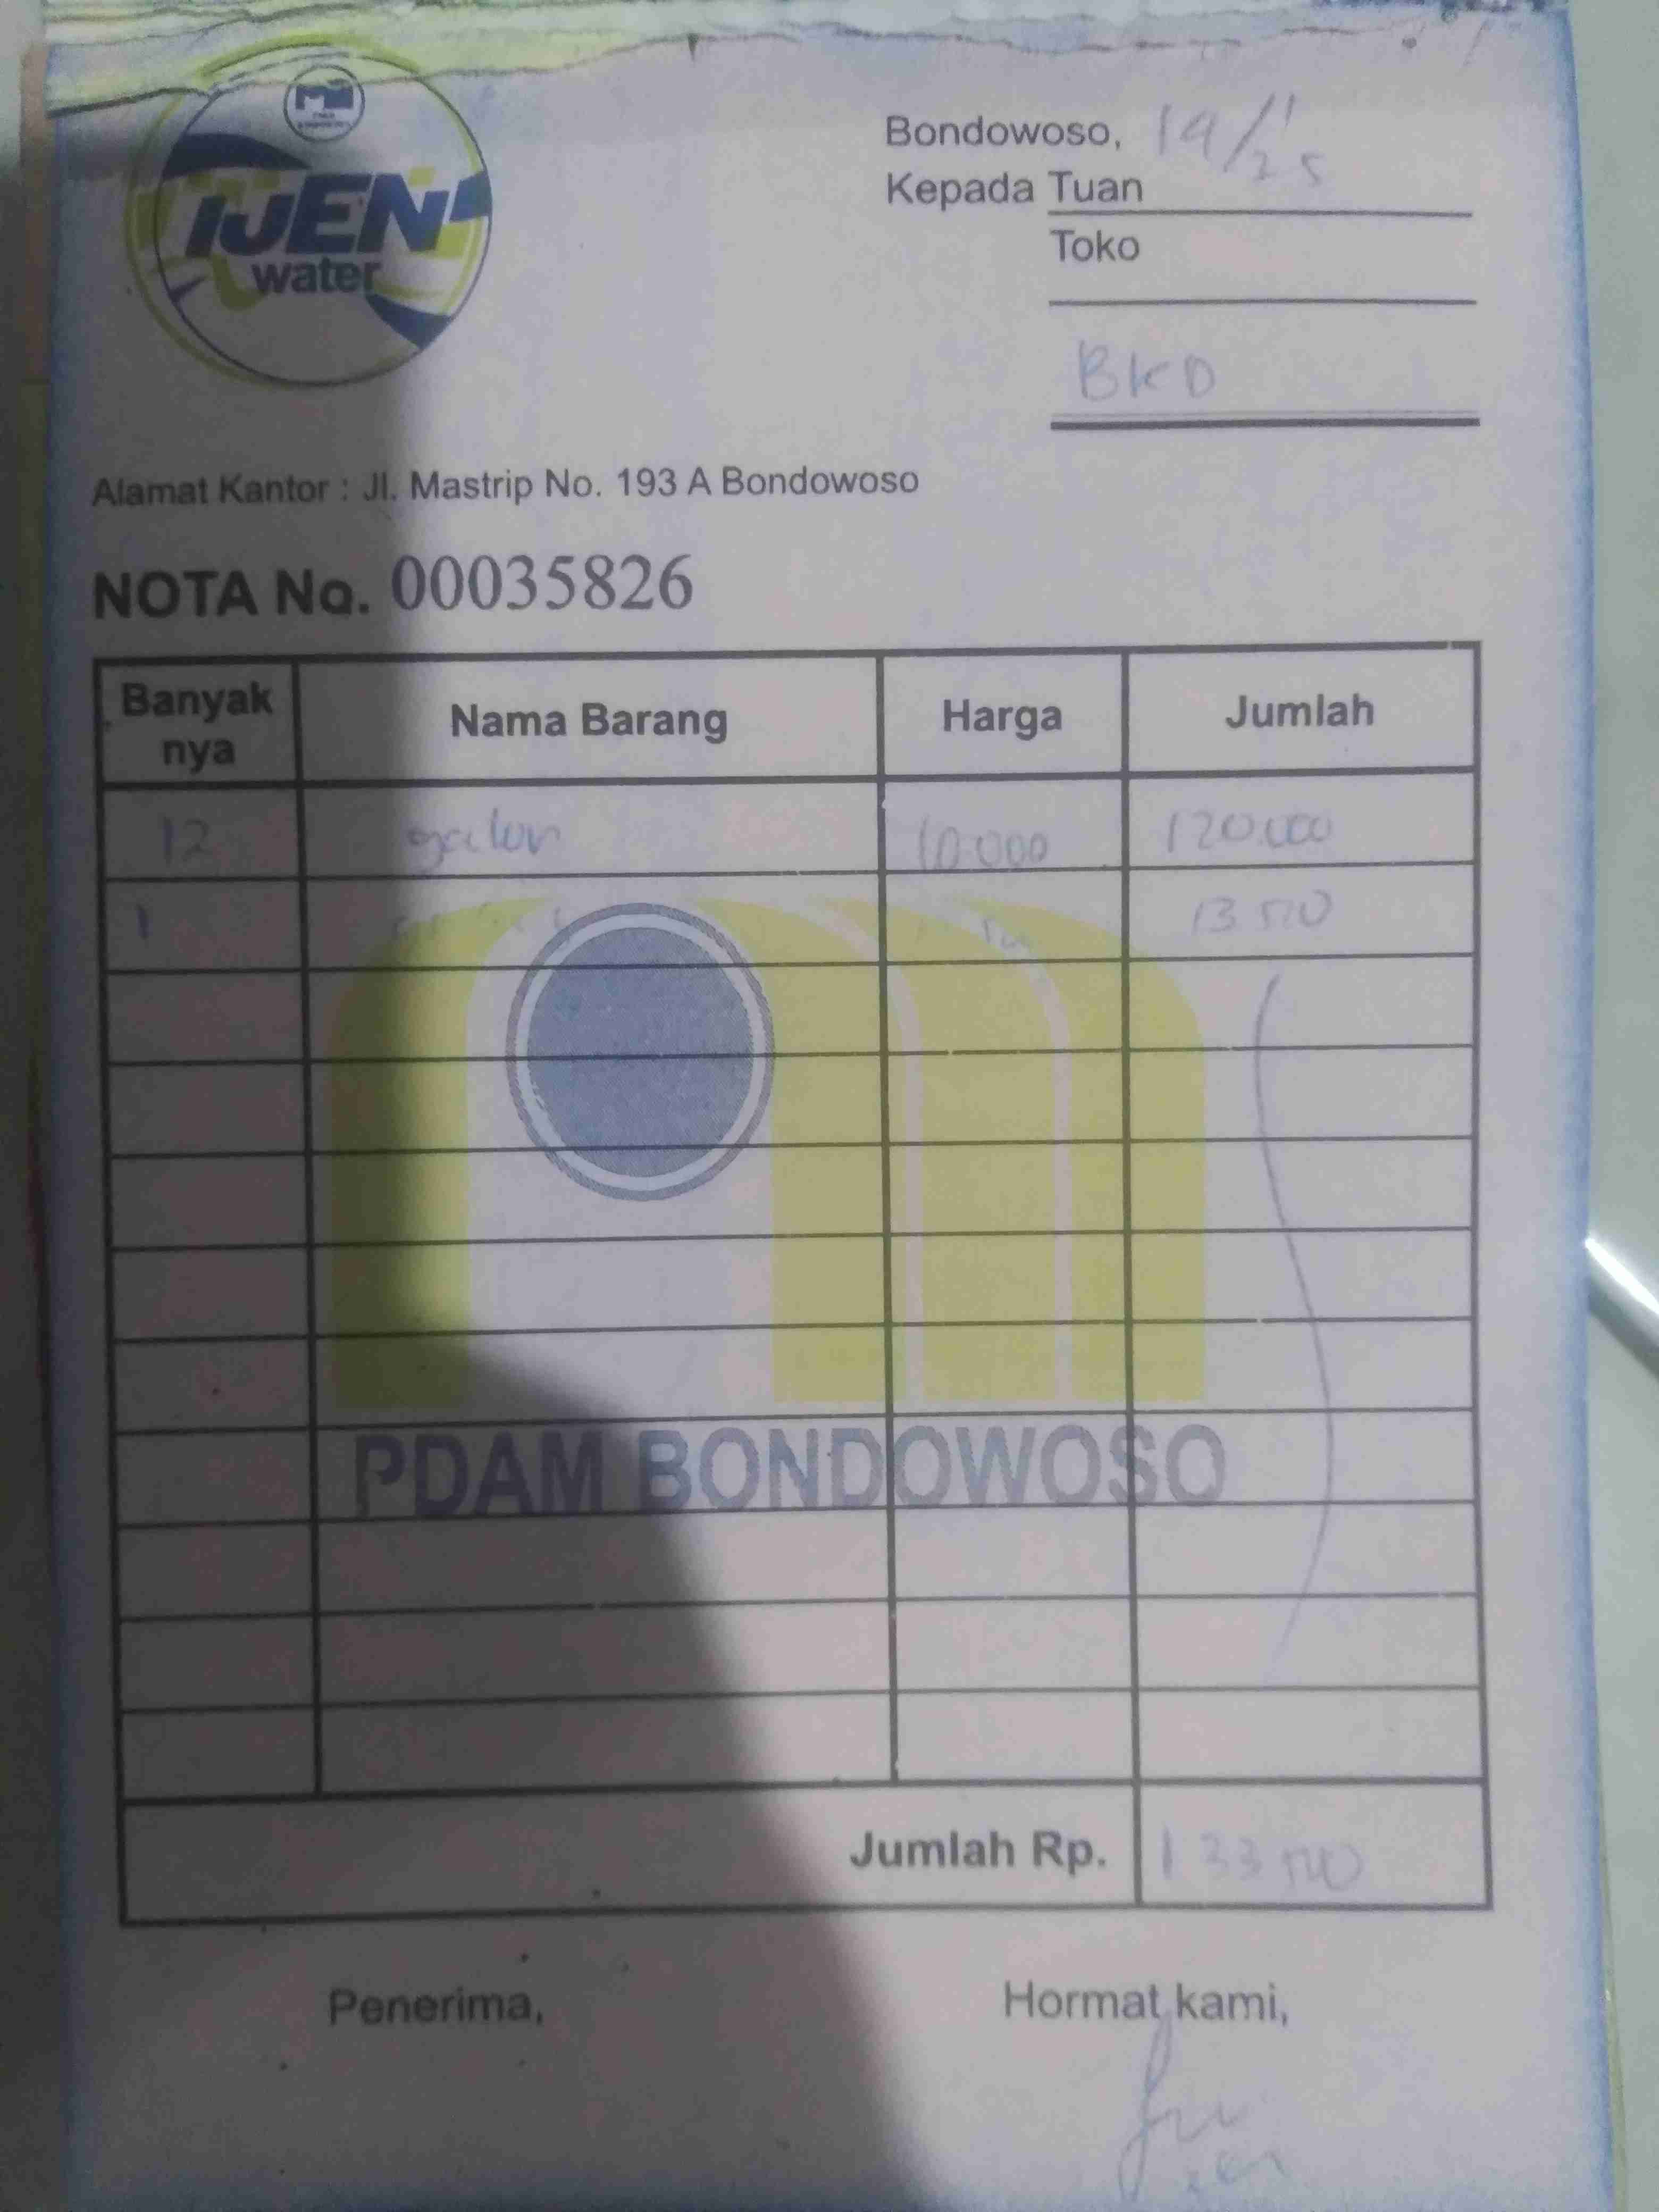 IJEN
water
Bondowoso, 19/1
25
Kepada Tuan
Toko
BKD
Alamat Kantor : Jl. Mastrip No. 193 A Bondowoso
NOTA No. 00035826
Banyak nya Nama Barang Harga Jumlah
12 galon 10.000 120.000
1 13.500
PDAM BONDOWOSO
Jumlah Rp. 133.500
Penerima, Hormat kami,